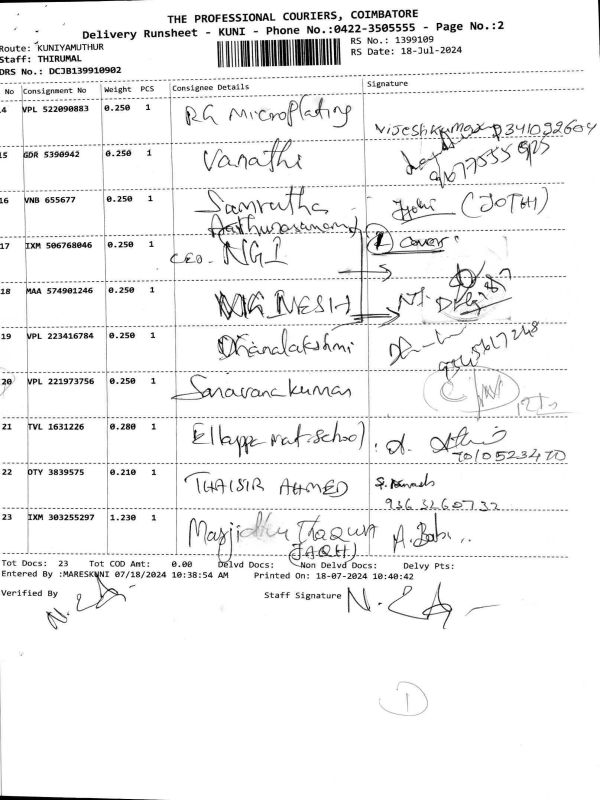 THE PROFESSIONAL COURIERS, COIMBATORE
Delivery Runsheet - KUNI - Phone No.:0422-3505555 - Page No.:2
Route: KUNIYAMUTHUR
RS No.: 1399109
Staff: THIRUMAL
RS Date: 18-Jul-2024
DRS No.: DCJB139910902
No Consignment No Weight PCS Consignee Details Signature
14 VPL 522090883 0.250 1 RG Microplating
15 GDR 5390942 0.250 1 Vanathi
16 VNB 655677 0.250 1 Samrutha (JOTHI)
17 IXM 506768046 0.250 1 CEO. NGI 1 cover
18 MAA 574901246 0.250 1
19 VPL 223416784 0.250 1 Dhanalakshmi
20 VPL 221973756 0.250 1 Saravana kumar
21 TVL 1631226 0.280 1 Ellappa mat. school
7010523470
22 OTY 3839575 0.210 1 THAISIR AHMED
9363260732
23 IXM 303255297 1.230 1 Masjidhu Thaqwa A. Babu
(JAQH)
Tot Docs: 23 Tot COD Amt: 0.00 Delvd Docs: Non Delvd Docs: Delvy Pts:
Entered By :MARESKUNI 07/18/2024 10:38:54 AM Printed On: 18-07-2024 10:40:42
Verified By Staff Signature
1